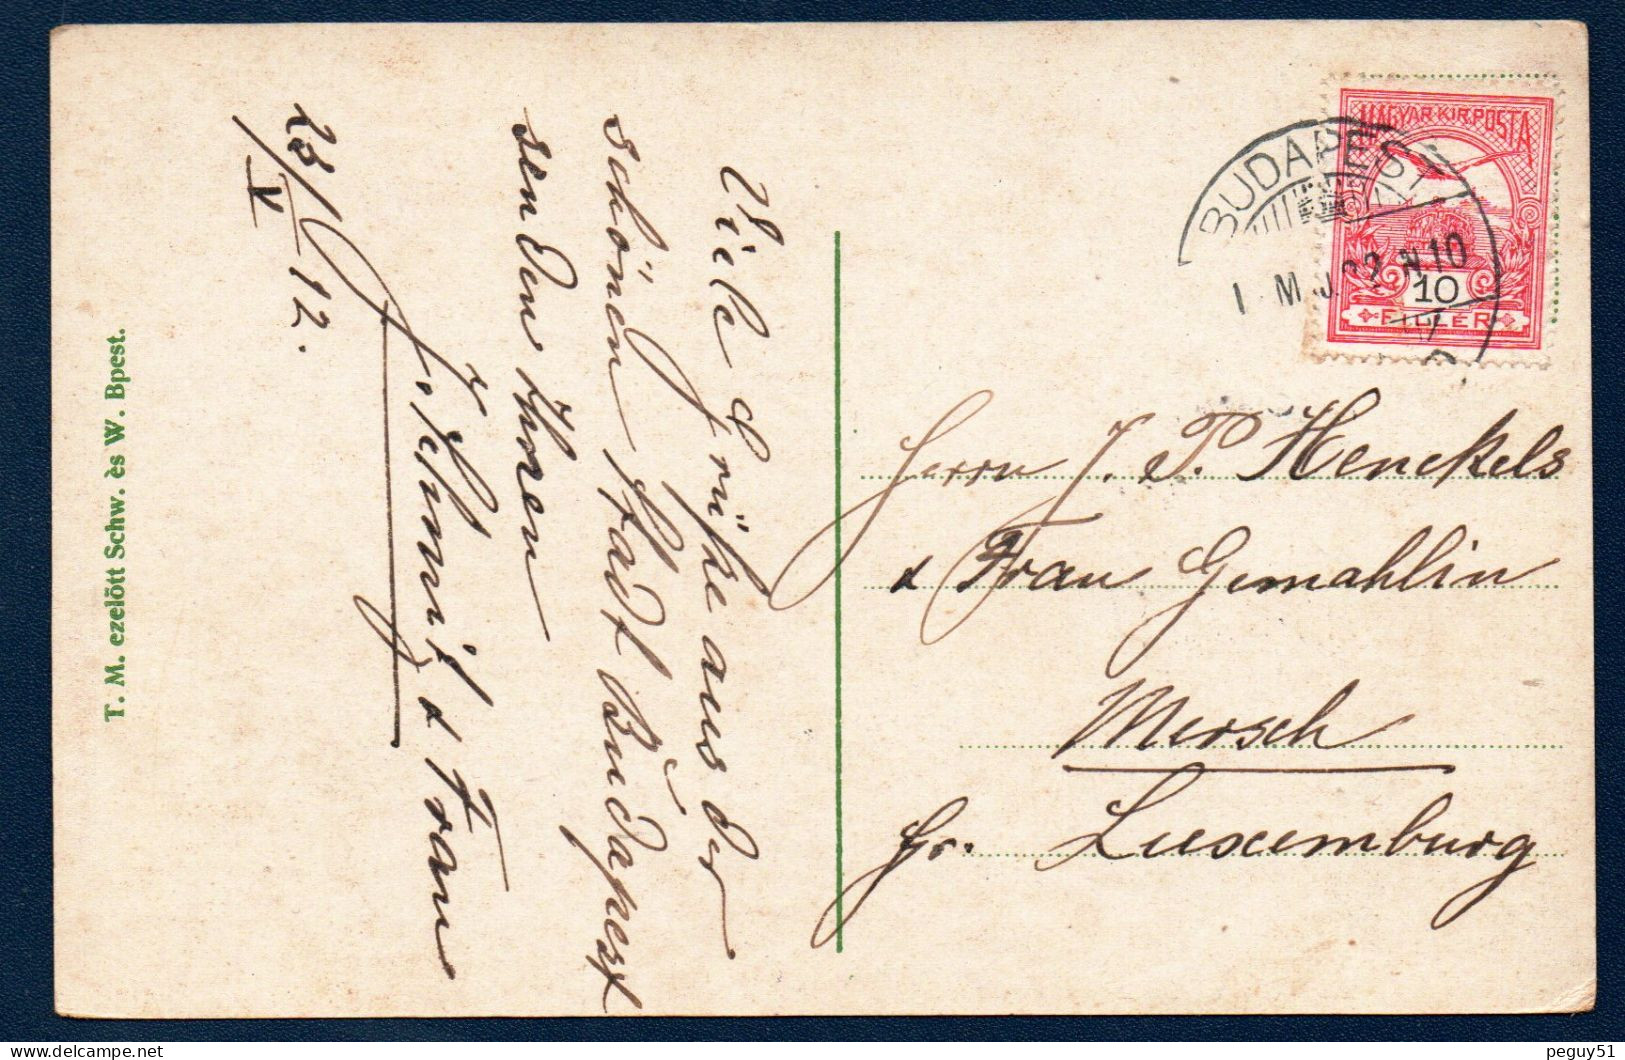 Viele Grüße aus der
schönen Stadt Budapest
senden Ihnen
J. Schmit & Frau
V 12.
T. M. ezelött Schw. ès W. Bpest.
MAGYAR KIR. POSTA
10
FILLER
BUDAPEST
Herrn J. P. Henckels
& Frau Gemahlin
Mersch
Gr. Luxemburg
delcampe.net
peguy51